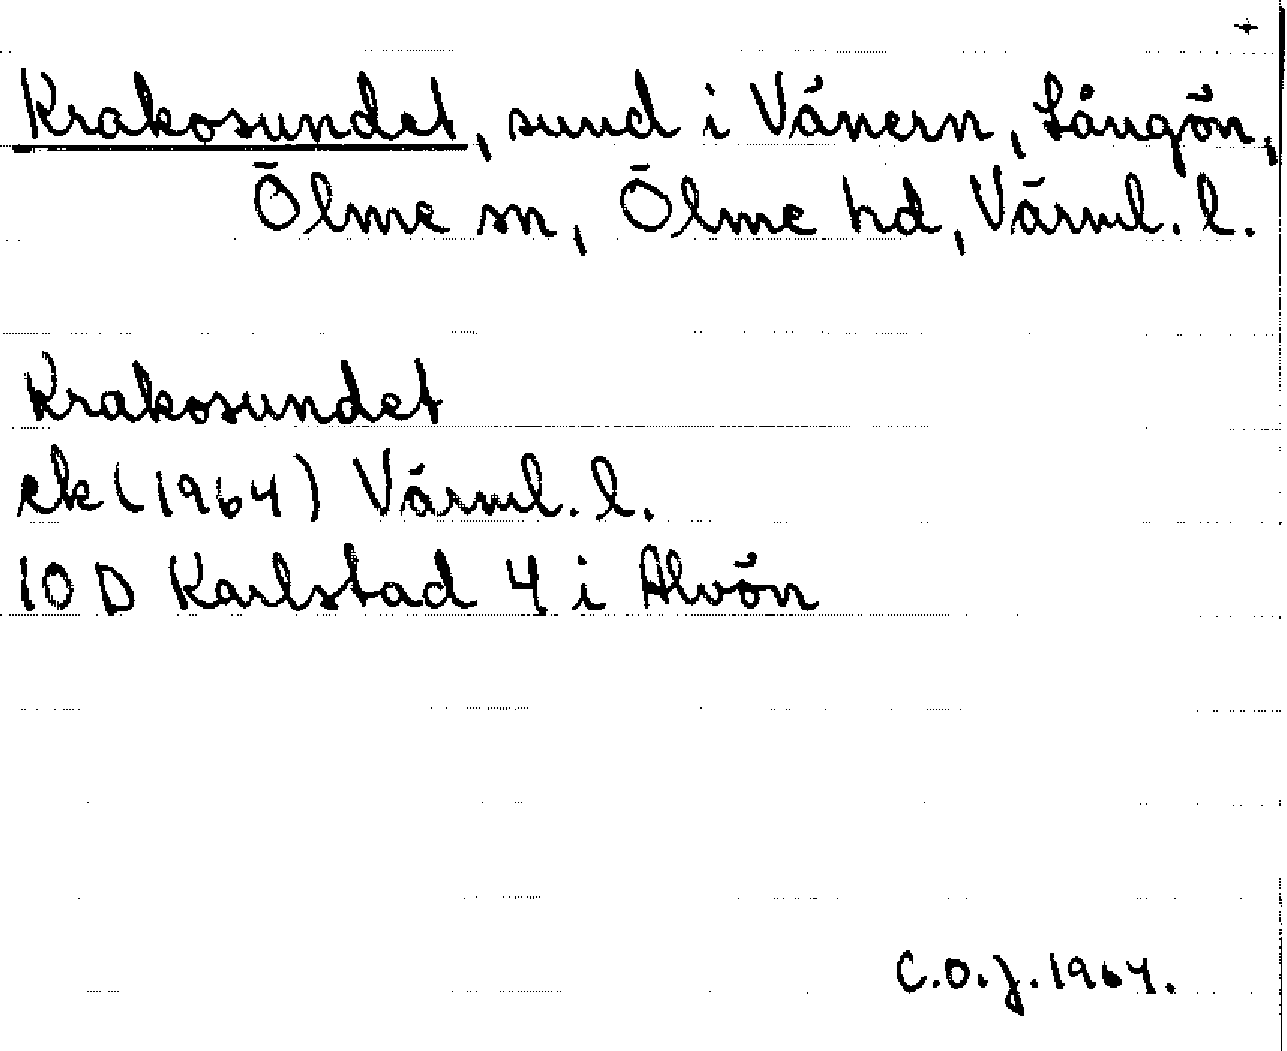 +
Krakosundet, sund i Vänern, Långön,
Ölme sn, Ölme hd, Värml. l.
Krakosundet
ek (1964) Värml. l.
10 D Karlstad 4 i Alvön
C.O.J. 1964.